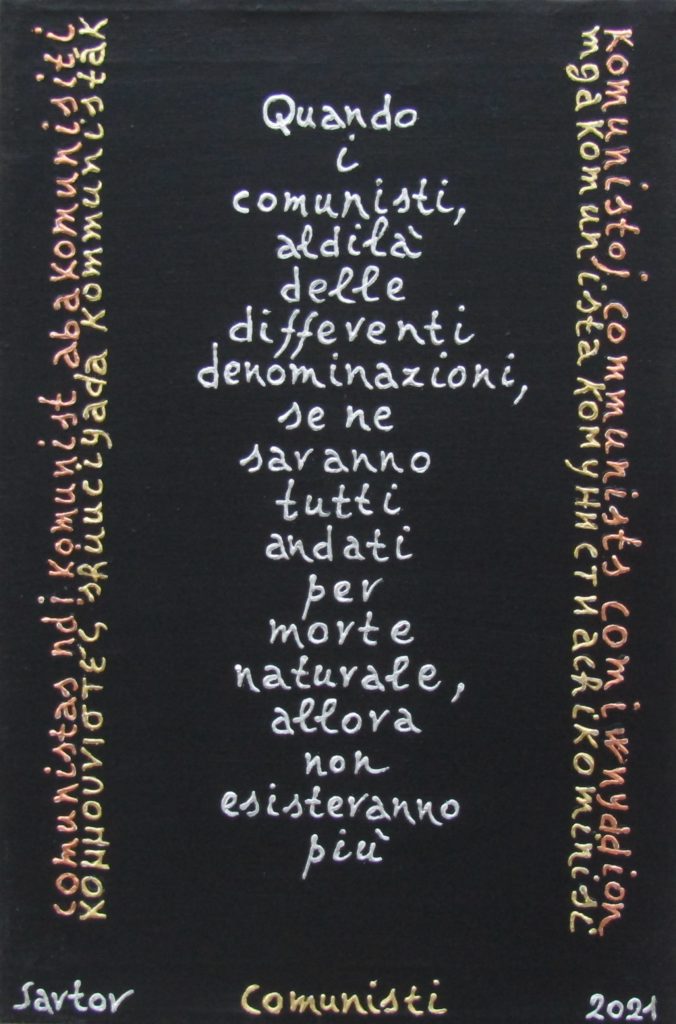 Quando
i
comunisti,
aldilà
delle
differenti
denominazioni,
se ne
saranno
tutti
andati
per
morte
naturale,
allora
non
esisteranno
più
comunistas ndi komunist abakomunisiti
κομμουνιστές shuuciyada kommunisták
komunistoj communists comiwnyddion
mga komunista комунисти achikominisi
Sartor
Comunisti
2021